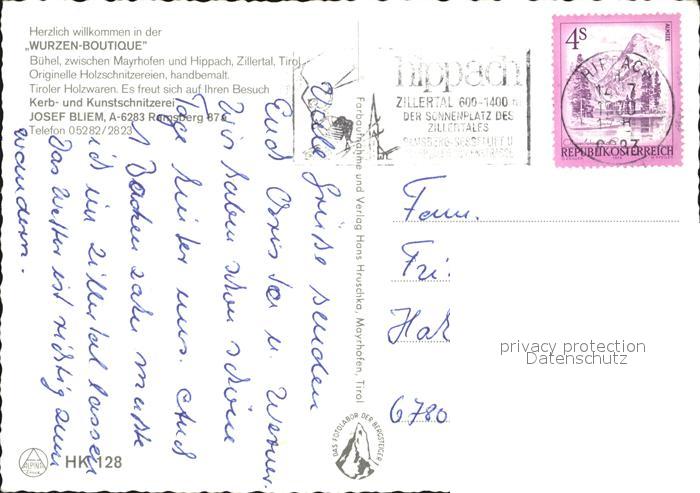 Herzlich willkommen in der
„WURZEN-BOUTIQUE"
Bühel, zwischen Mayrhofen und Hippach, Zillertal, Tirol
Originelle Holzschnitzereien, handbemalt.
Tiroler Holzwaren. Es freut sich auf Ihren Besuch
Kerb- und Kunstschnitzerei
JOSEF BLIEM, A-6283 Ramsberg 87
Telefon 05282/2823
Viele Grüße senden
Euch Christa u. Werner.
Wir haben schon schöne
Tage hinter uns. Auch
Backenzahn mußte
ich im Zillertal lassen
Das Wetter ist richtig zum
wandern.
HK 128
ALPINA
Farbaufnahme und Verlag Hans Hruschka, Mayrhofen, Tirol
DAS FOTOLABOR DER BERGSTEIGER
hippach
ZILLERTAL 600-1400 m
DER SONNENPLATZ DES
ZILLERTALES
4S
ALMSEE
REPUBLIK ÖSTERREICH
HIPPACH
6283
Fam.
Fri
Hak
6780
privacy protection
Datenschutz